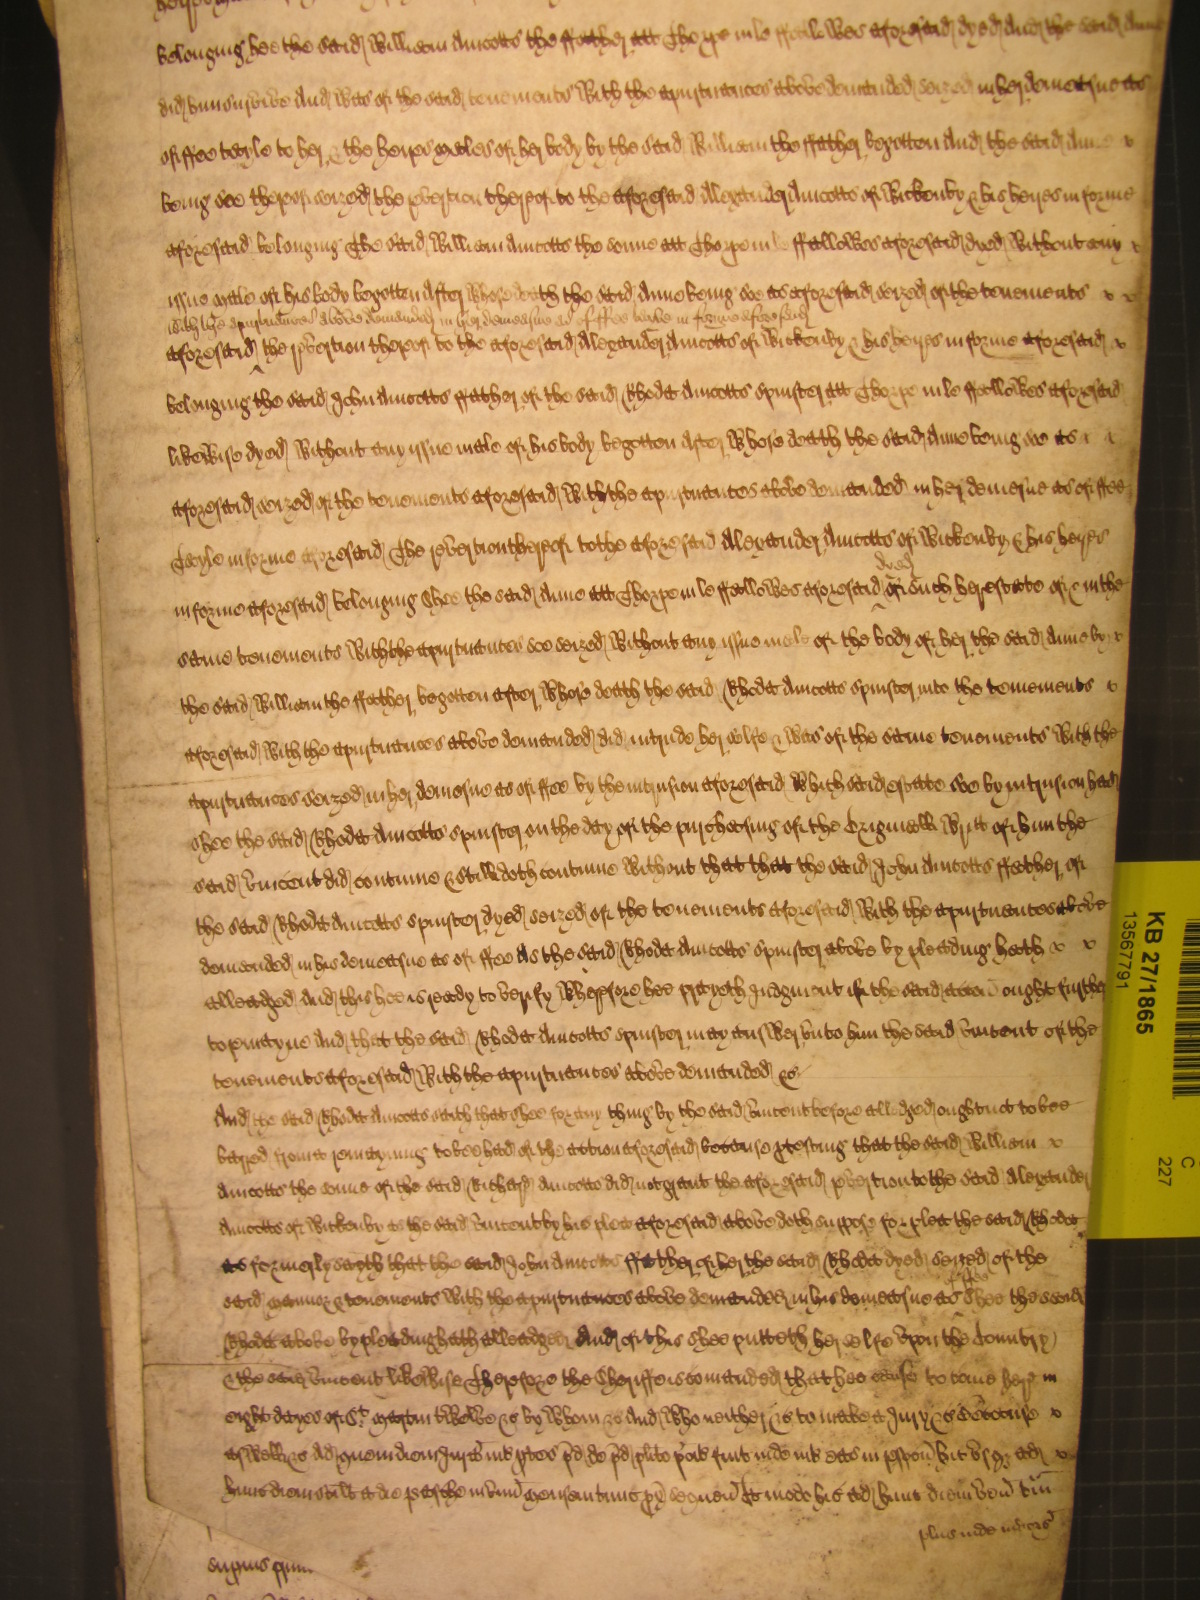 belonging hee the said William Amcotts the ffather att Thorpe in le ffallowes aforesaid dyed And the said Anne
did him survive And was of the said tenements With the appurtances above demanded seized in her demeasne as
of ffee tayle to her & the heires males of her body by the said William the ffather begotten And the said Anne
being soe thereof seized the revertion thereof to the aforesaid Alexander Amcotts of Wickenby & his heires in forme
aforesaid belonging The said William Amcotts the sonne att Thorpe in le ffallowes aforesaid dyed Without any
issue male of his body begotten After Whose death the said Anne being soe as aforesaid seized of the tenements
With the appurtenances above demanded in her demeasne as of ffee taile in forme aforesaid
aforesaid the revertion thereof to the aforesaid Alexander Amcotts of Wickenby & his heires in forme aforesaid
belonging the said John Amcotts ffather of the said Rhoda Amcotts spinster att Thorpe in le ffallowes aforesaid
likewise dyed Without any issue male of his body begotten After Whose death the said Anne being soe as
aforesaid seized of the tenements aforesaid With the appurtances above demanded in her demesne as of ffee
Tayle in forme aforesaid The revertion thereof to the aforesaid Alexander Amcotts of Wickenby & his heyres
dyed
in forme aforesaid belonging Shee the said Anne att Thorpe in le ffallowes aforesaid of such her estate of & in the
same tenements With the appurtances soe seized Without any issue male of the body of her the said Anne by
the said William the ffather begotten after Whose death the said Rhoda Amcotts spinster into the tenements
aforesaid With the appurtances above demanded did intrude her selfe & Was of the same tenements With the
appurtances seized in her demesne as of ffee by the intrusion aforesaid Which said estate soe by intrusion had
shee the said Rhoda Amcotts spinster on the day of the purchasing of the Originall Writt of him the
said Vincent did continue & still doth continue Without that that the said John Amcotts ffather of
the said Rhoda Amcotts spinster dyed seized of the tenements aforesaid With the appurtances above
demanded in his demeasne as of ffee As the said Rhoda Amcotts spinster above by pleading hath
alleadged And this hee is ready to verify Wherefore hee prayeth Judgment if the said ought further
And that the said Rhoda Amcotts spinster may answer unto him the said Vincent of the
tenements aforesaid With the appurtances above demanded &c
And the said Rhoda Amcotts saith that shee for any thing by the said Vincent before alledged ought not to bee
barred from to bee had of the action aforesaid because protesting that the said William
Amcotts the sonne of the said Richard Amcotts did not grant the aforesaid revertion to the said Alexander
Amcotts of Wickenby as the said Vincent by his plea aforesaid above doth suppose for plea the said Rhoda
as formerly sayth that the said John Amcotts ffather of her the said Rhoda dyed seized of the
of ffee
said mannor & tenements With the appurtances above demanded in his demeasne as Shee the said
Rhoda above by pleading hath alleadged And of this shee putteth her selfe upon the Country
& the said Vincent likewise Therefore the Sheriffe is comanded that hee cause to come here in
eight dayes of St. Martin twelve &c by Whom &c And Who neither &c to make a Jury &c because
aswell &c Ad quem diem Jurata int partes pred de pred plito
hunc diem
plus inde